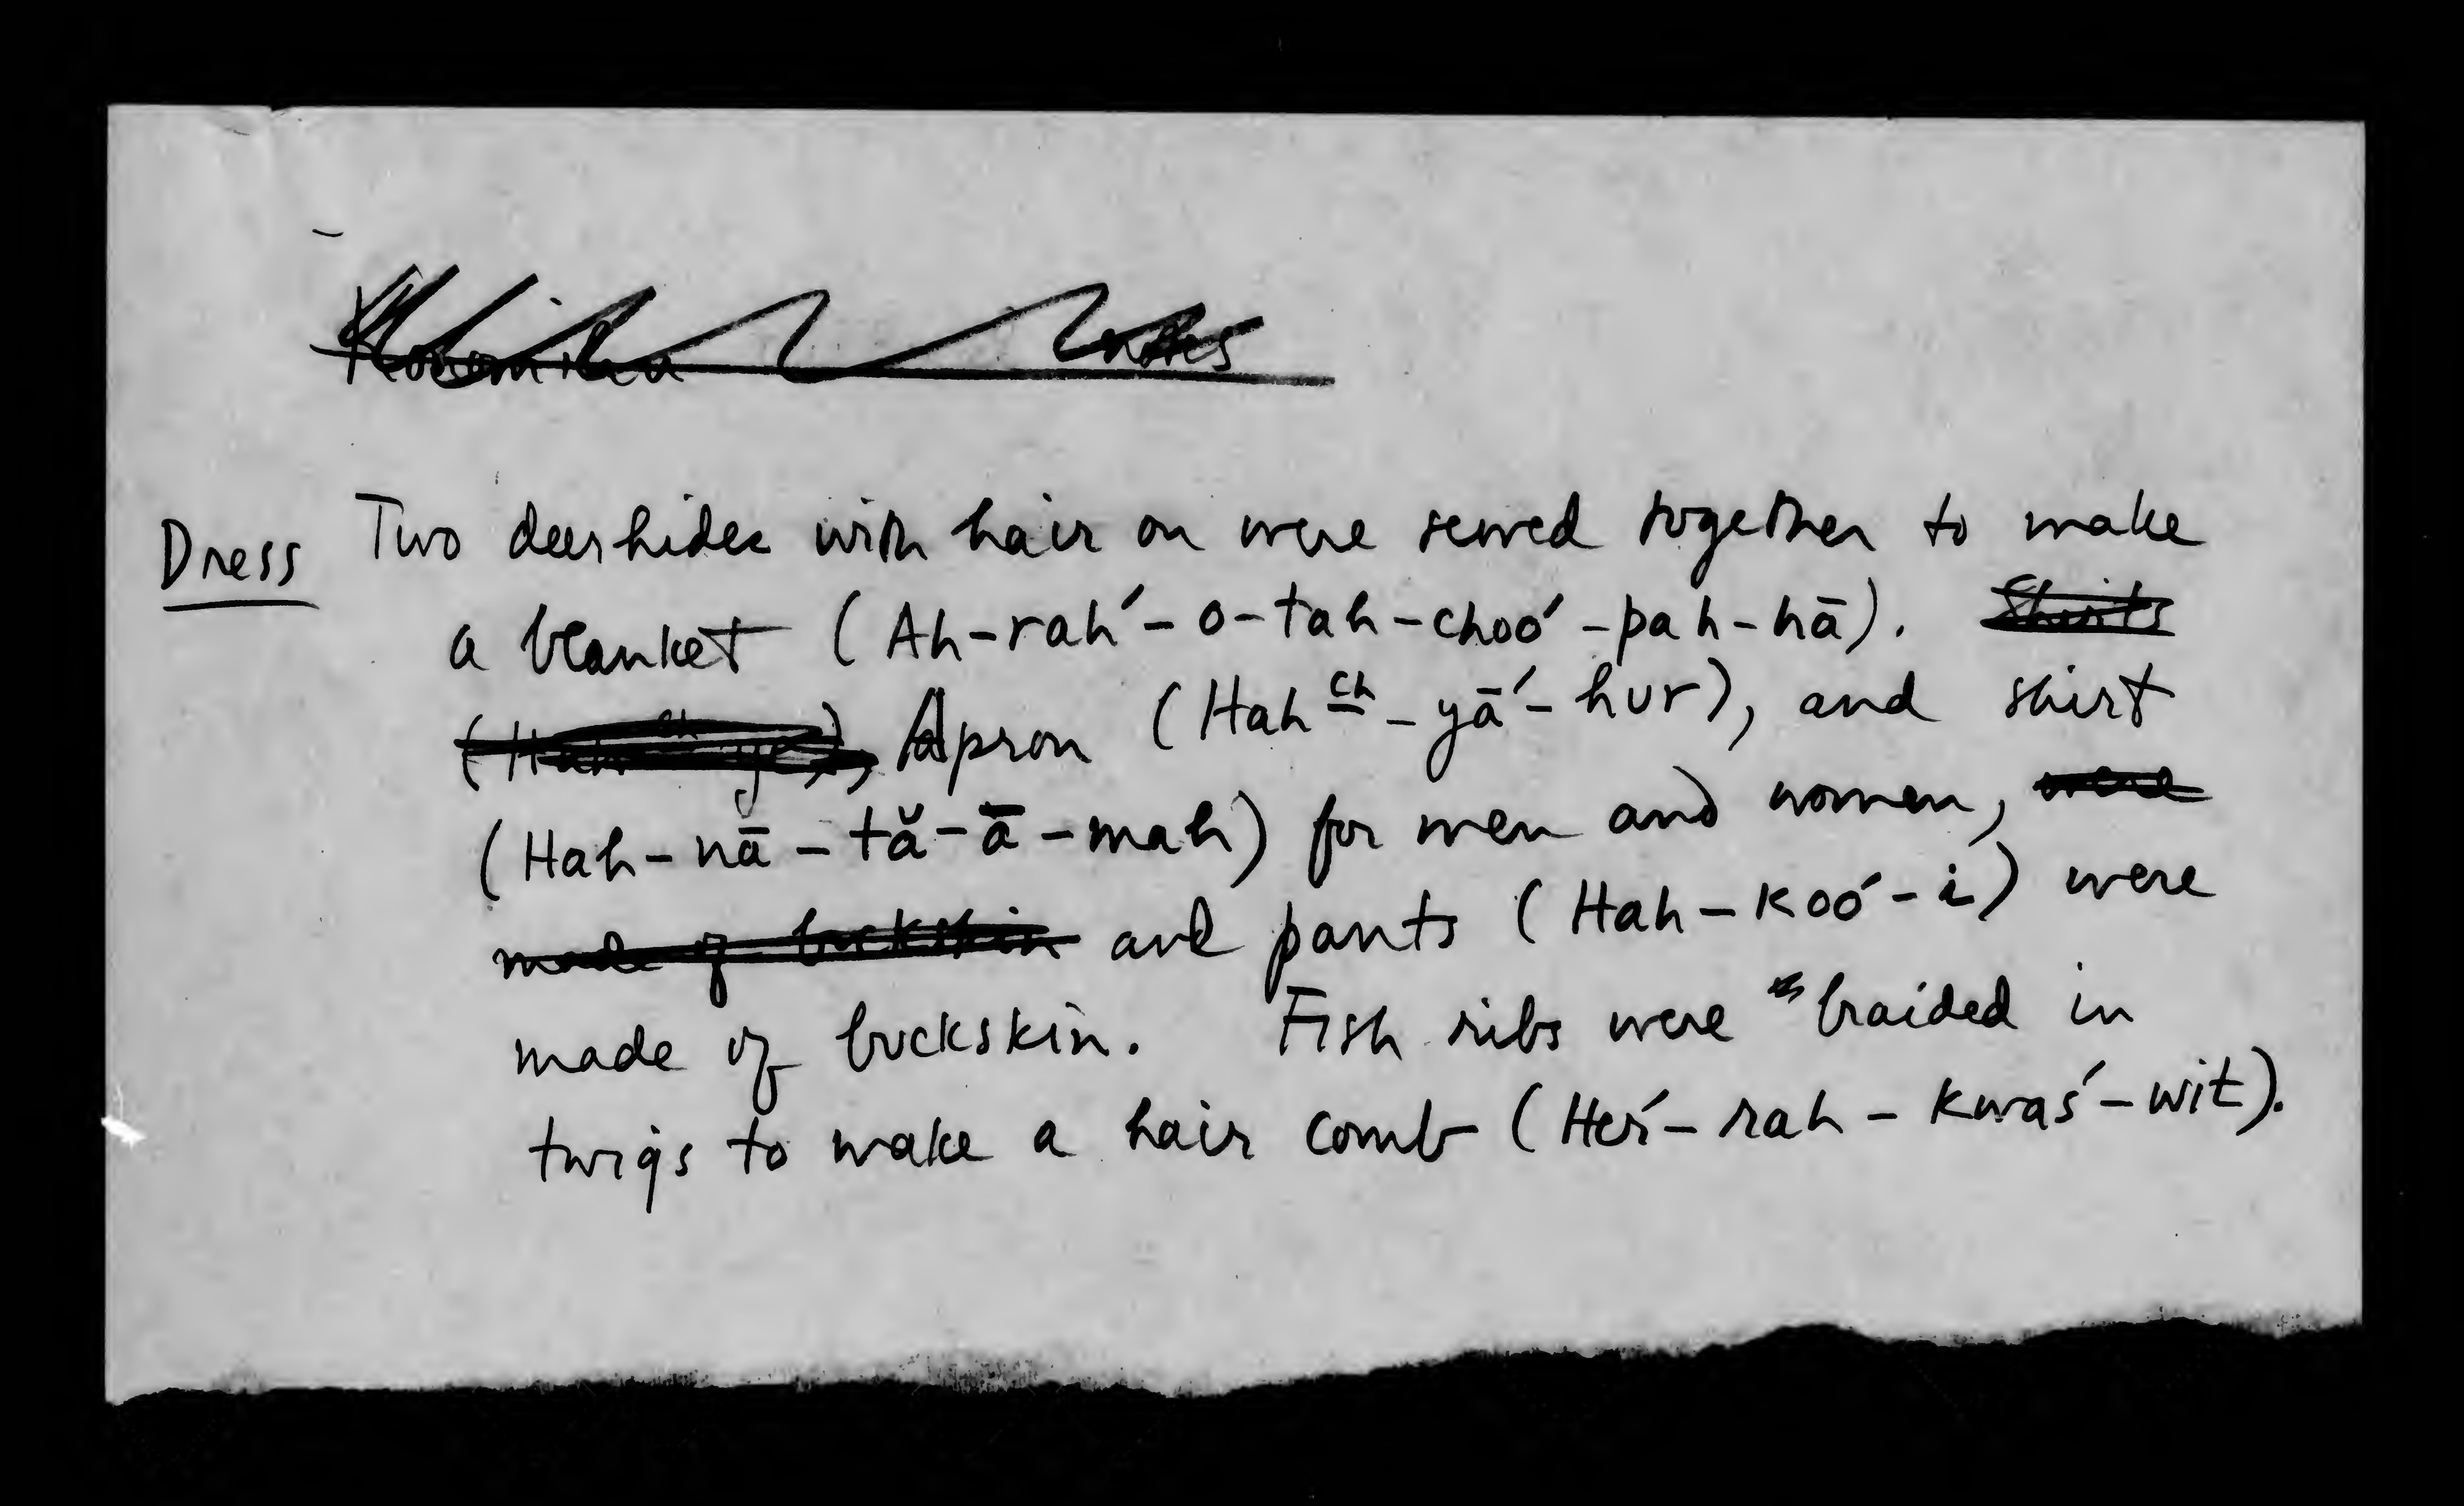 Dress Two deerhides with hair on were sewed together to make
a blanket (Ah-rah´-o-tah-choo´-pah-hā). Shirts
Apron (Hah ch-yā´-hur), and shirt
(Hah-nā-tă-ā-mah) for men and women, were
made of buckskin and pants (Hah-koo´-i) were
made of buckskin. Fish ribs were braided in
twigs to make a hair comb (Her´-rah-kwas´-wit).